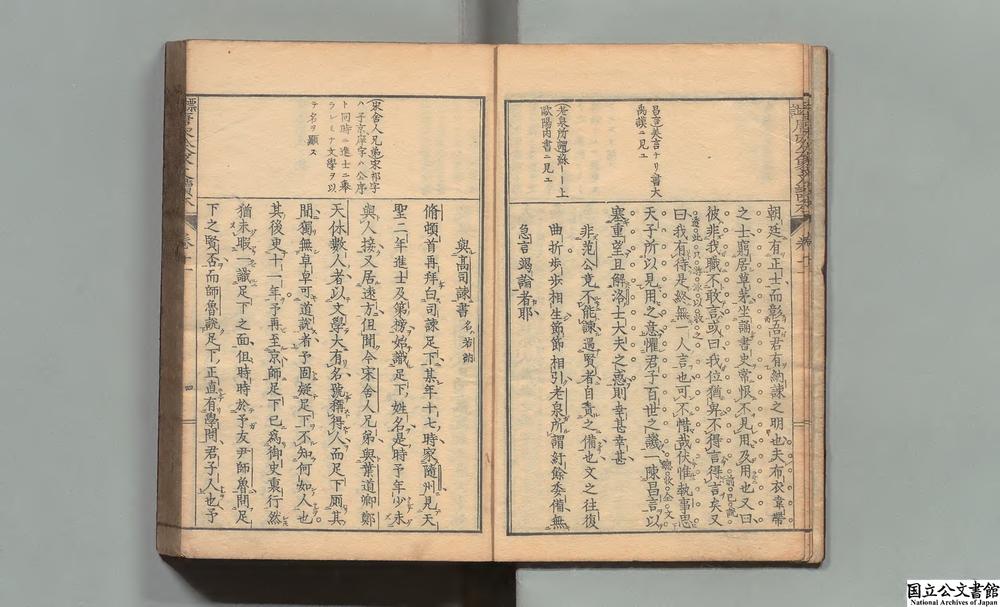 昌言美言ナリ書大
禹謨ニ見ユ
老泉所謂蘇――上
歐陽内書ニ見ユ
朝廷有正士而彰吾君有納諫之明也夫布衣韋帶
之士窮居草茅坐誦書史常恨不見用及用也又曰
彼非我職不敢言或曰我位猶卑不得言得言矣又
曰我有待是終無一人言也可不惜哉伏惟執事思
天子所以見用之意懼君子百世之譏一陳昌言以
塞重望且解洛士大夫之惑則幸甚幸甚
非范公竟不能諫過賢者自責之備也文之往復
曲折步步相生節節相引老泉所謂紆餘委備無
急言竭論者耶
與高司諫書 名若訥
宋舍人兄弟宋祁字
ハ子京庠字ハ公序
ト同時ニ進士ニ擧
ラレミナ文學ヲ以
テ名ヲ顯ス
脩頓首再拜白司諫足下某年十七時家隨州見天
聖二年進士及第榜始識足下姓名是時予年少未
與人接又居遠方但聞今宋舍人兄弟與葉道卿鄭
天休數人者以文學大有名號稱得人而足下厠其
間獨無卓卓可道說者予固疑足下不知何如人也
其後更十一年予再至京師足下已爲御史裏行然
猶未暇一識足下之面但時時於予友尹師魯問足
下之賢否而師魯說足下正直有學問君子人也予
卷十一
四
国立公文書館
National Archives of Japan